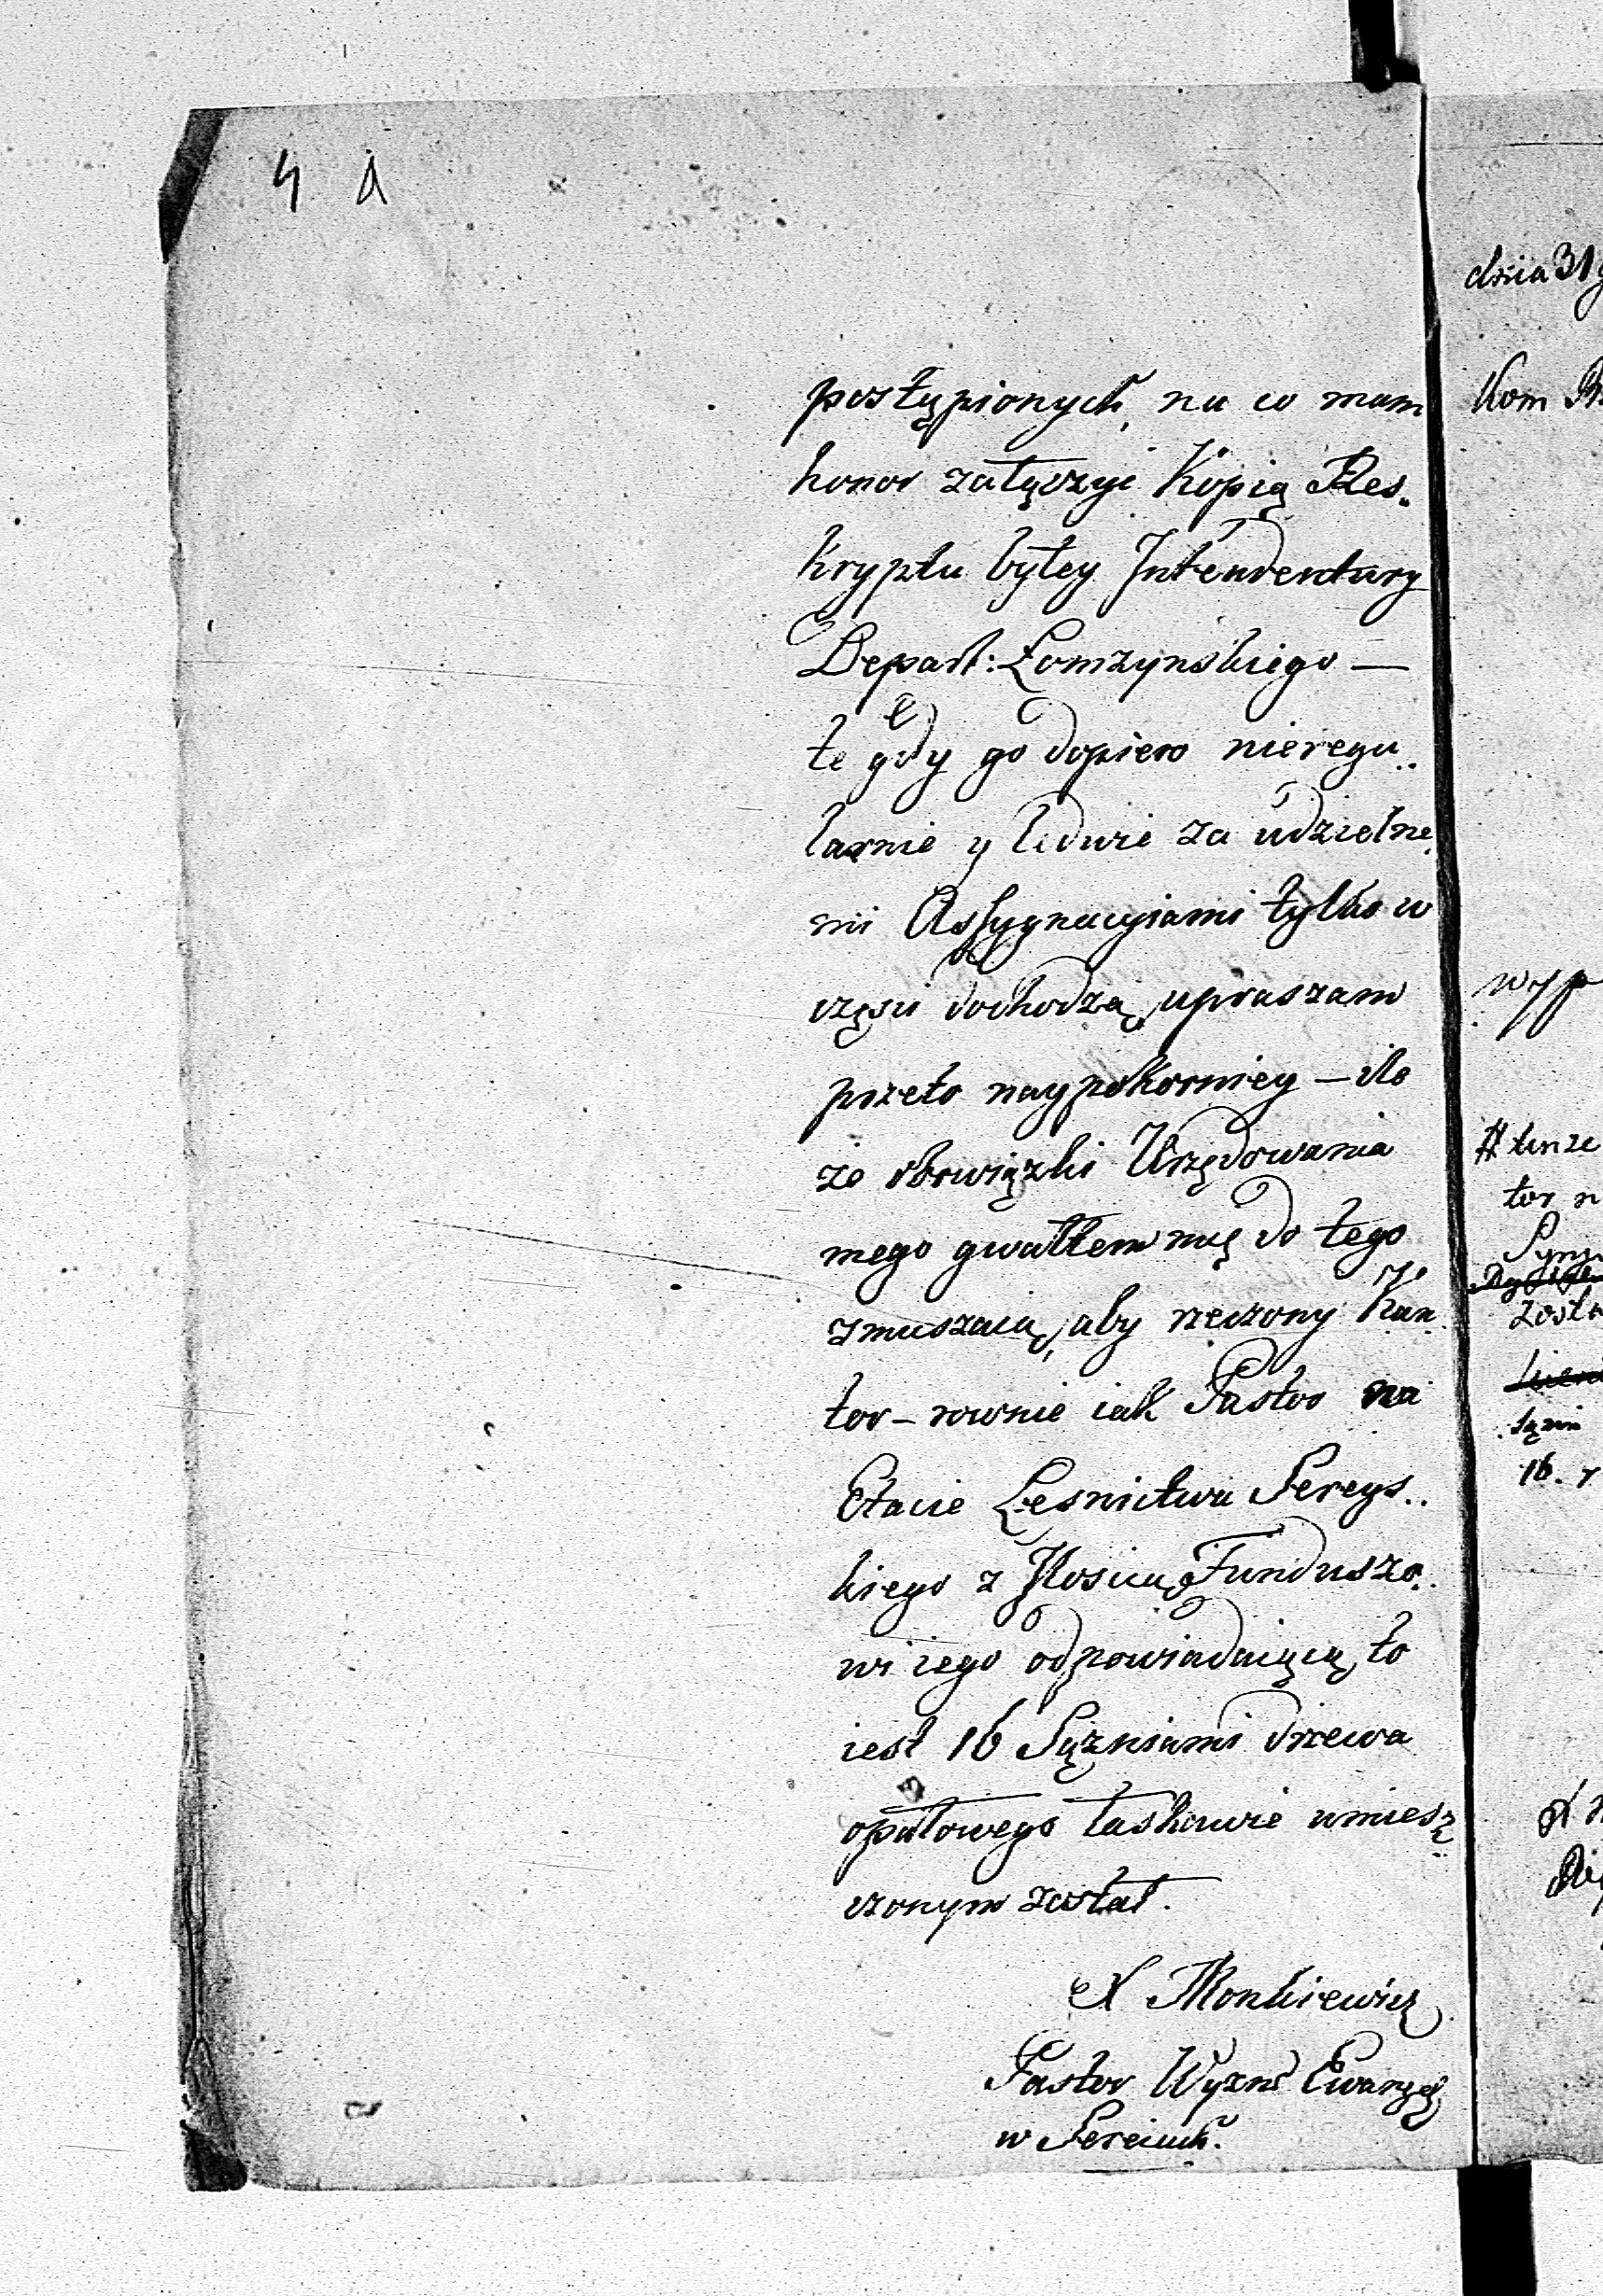 4 A
postąpionych, na co mam
honor załączyć Kopią Res„
kryptu byłey Intendentury
Depart: Łomzynskiego —
te gdy go dopiero nieregu„
larnie y ledwie za udzielne„
mi Assygnacyiami tylko w
częsci dochodzą, upraszam
przeto naypokorniey — ile
że obowiązki Urzędowania
mego gwałtem mię do tego
zmuszaią, aby rzeczony Kan„
tor – rownie iak Pastor na
Etacie Lesnictwa Sereys„
kiego z Jloscią Funduszo„
wi iego odpowiadaiącą, to
iest 16 Sążniami drzewa
opałowego łaskawie umiesz„
czonym został.
X Monkiewicz
Pastor Wyzn: Ewang:
w Sereiach.
dnia 31
Kom
wyp
tor
zosta
16.